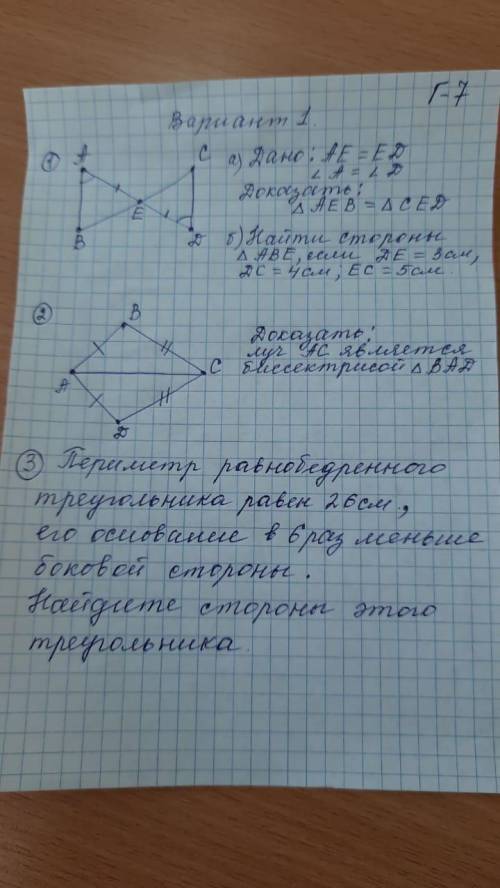 Г-7
Вариант 1.
① а) Дано: AE = ED
∠A = ∠D
Доказать:
△AEB = △CED
б) Найти стороны
△ABE, если DE = 3см,
DC = 4см; EC = 5см.
A
C
E
B
D
② Доказать:
луч AC является
биссектрисой △BAD
B
A
C
D
③ Периметр равнобедренного
треугольника равен 26см.,
его основание в 6 раз меньше
боковой стороны.
Найдите стороны этого
треугольника.